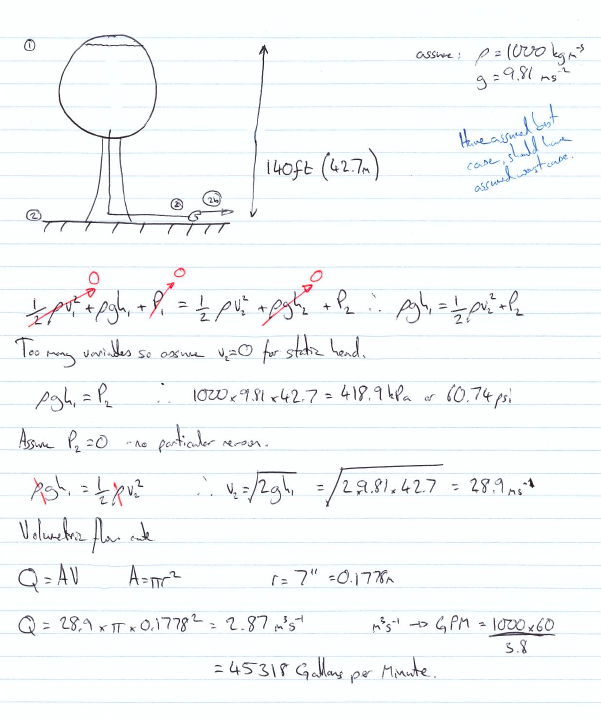 ①
assume: ρ = 1000 kg m⁻³
g = 9.81 ms⁻²
Have assumed best
case, should have
assumed worst case.
140ft (42.7m)
② 2a 2b
0 0 0
½ρv₁² + ρgh₁ + P₁ = ½ρv₂² + ρgh₂ + P₂ ∴ ρgh₁ = ½ρv₂² + P₂
Too many variables so assume v₂=0 for static head.
ρgh₁ = P₂ ∴ 1000 × 9.81 × 42.7 = 418.9 kPa or 60.74 psi
Assume P₂ = 0 - no particular reason.
ρgh₁ = ½ρv₂² ∴ v₂ = √2gh₁ = √2×9.81×42.7 = 28.9 ms⁻¹
Volumetric flow rate
Q = AV A = πr² r = 7" = 0.1778m
Q = 28.9 × π × 0.1778² = 2.87 m³s⁻¹ m³s⁻¹ → GPM = 1000×60
3.8
= 45318 Gallons per Minute.